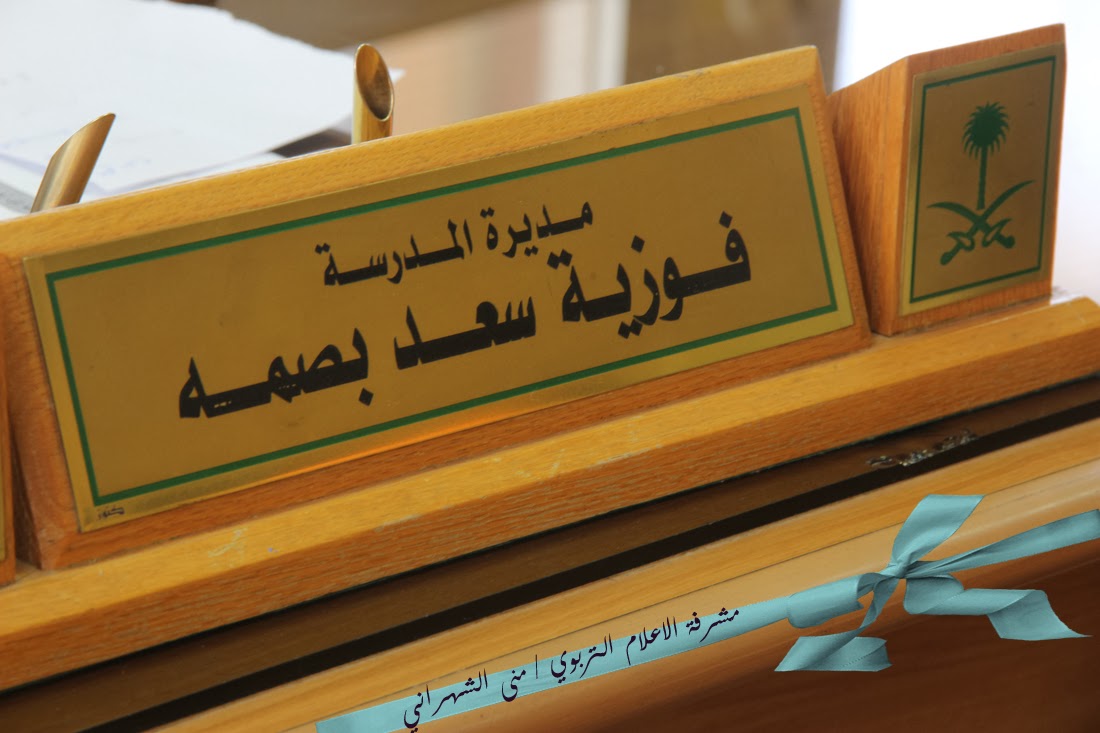 مديرة المدرسة
فوزية سعد بصمه
مشرفة الاعلام التربوي / منى الشهراني